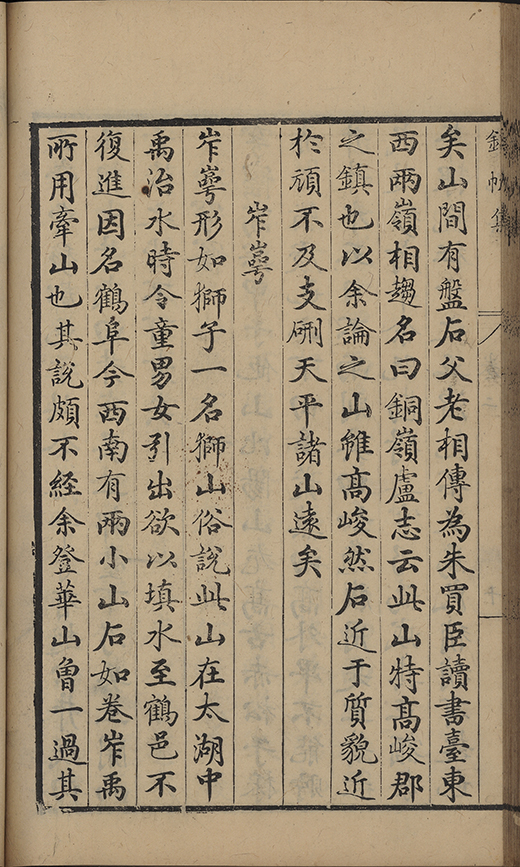 錦帆集
矣山間有盤石父老相傳為朱買臣讀書臺東
西兩嶺相趨名曰銅嶺盧志云此山特髙峻郡
之鎮也以余論之山雖髙峻然石近于質貌近
於頑不及支硎天平諸山遠矣
岝崿
岝崿形如獅子一名獅山俗說此山在太湖中
禹治水時令童男女引出欲以填水至鶴邑不
復進因名鶴阜今西南有兩小山石如卷岝禹
所用牽山也其說頗不經余登華山曾一過其